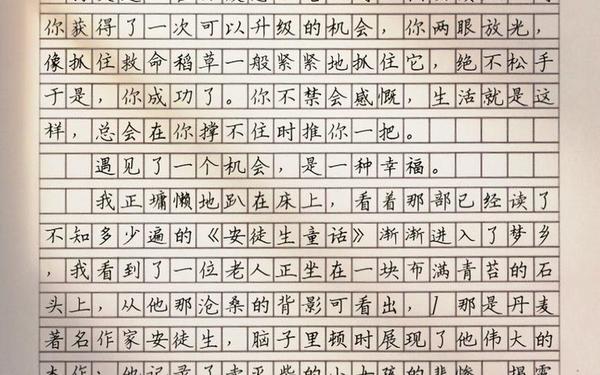 你获得了一次可以升级的机会,你两眼放光,
像抓住救命稻草一般紧紧地抓住它,绝不松手
于是,你成功了。你不禁会感慨,生活就是这
样,总会在你撑不住时推你一把。
遇见了一个机会,是一种幸福。
我正墉懒地趴在床上,看着那部已经读了
不知多少遍的《安徒生童话》渐渐进入了梦乡
,我看到了一位老人正坐在一块布满青苔的石
头上,从他那沧桑的背影可看出,那是丹麦
著名作家安徒生,脑子里顿时展现了他伟大的